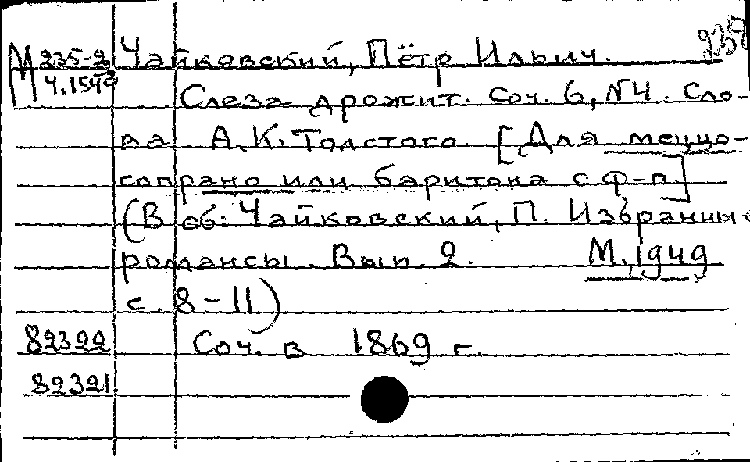 М 235-2 Чайковский, Пётр Ильич.
Ч.1549 Слеза дрожит. Соч. 6, №4. Сло-
ва А.К. Толстого [Для меццо-
сопрано или баритона с ф-п.]
(В сб: Чайковский, П. Избранные
романсы. Вып. 2. М., 1949
с. 8-11)
82322 Соч. в 1869 г.
82321